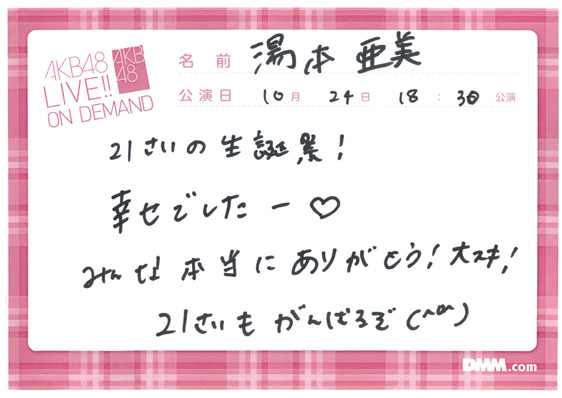 AKB48
LIVE!!
ON DEMAND
AKB
48
名前 湯本亜美
公演日 10月 24日 18:30 公演
21さいの生誕祭!
幸せでしたー♡
みんな本当にありがとう!大スキ!
21さいもがんばるぞ(^o^)
DMM.com